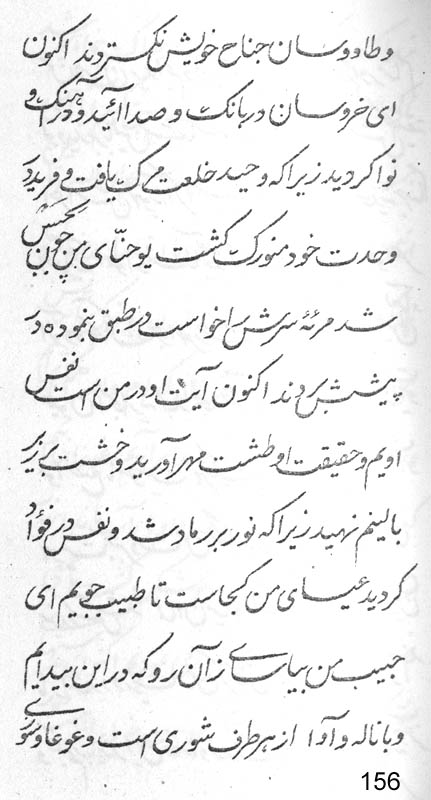 و طاووسان جناح خویش نگستردند اکنون
ای خروسان در بانگ و صدا آئید و در آهنگ و
نوا کردید زیرا که وحید خلعت مرگ یافت و فرید در
وحدت خود منورک گشت یوحنّای من چون بحبس
شد مرئهٔ سرش را خواست در طبق بنموده در
پیشش بردند اکنون آیت او در من است نفس
اویم و حقیقت او طشت مهر آورید و خشت بر زیر
بالینم نهید زیرا که نور بر رماد شد و نفس در فؤاد
کردید عیسای من کجاست تا طبیب جویم ای
حبیب من بیا سوی ز آن رو که در این بیدایم
و با ناله و آوا از هر طرف شوری است و غوغا و سوی
156